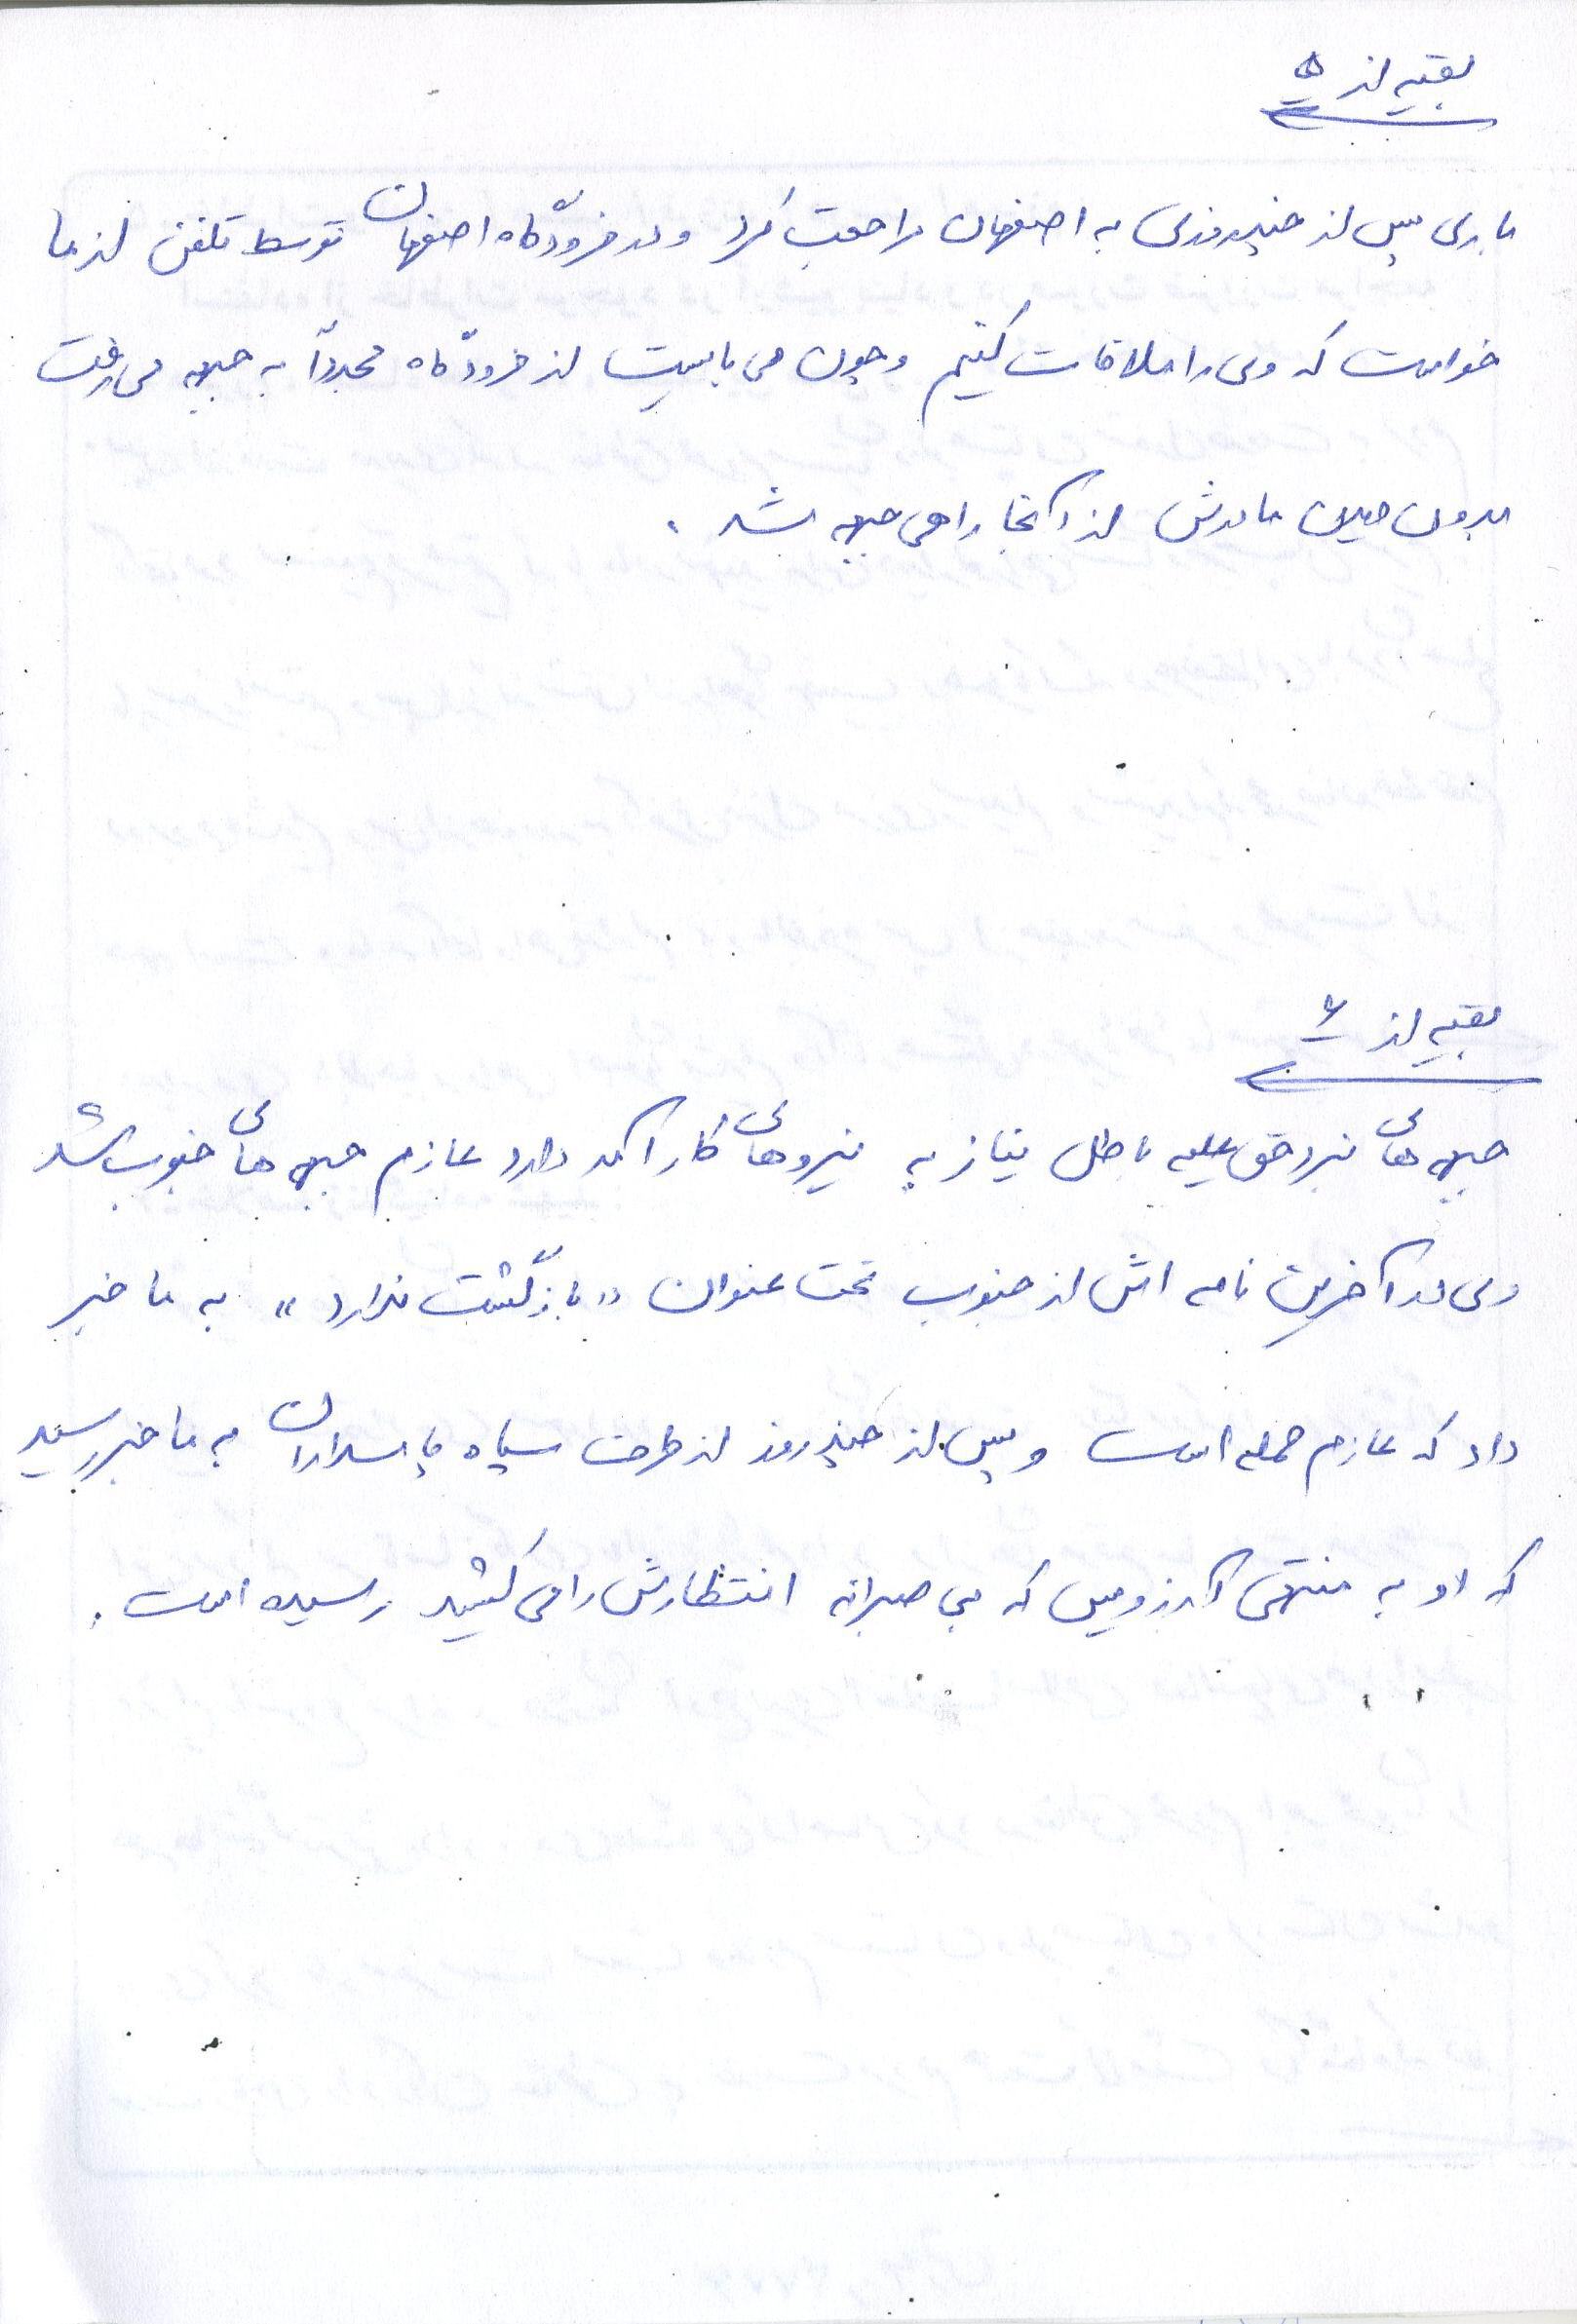 بقیه از ۵
باری پس از چند روزی به اصفهان مراجعت کرد و در فرودگاه اصفهان توسط تلفن از ما
خواست که وی را ملاقات کنیم و چون می بایست از فرودگاه مجدداً به جبهه می رفت
بدون دیدن مادرش از آنجا راهی جبهه شد .
بقیه از ۶
جبهه های نبرد حق علیه باطل نیاز به نیروهای کارآمد دارد عازم جبهه های جنوب شد
وی در آخرین نامه اش از جنوب تحت عنوان « بازگشت ندارد » به ما خبر
داد که عازم حمله است و پس از چند روز از طرف سپاه پاسداران به ما خبر رسید
که او به منتهی آرزویش که بی صبرانه انتظارش را می کشید رسیده است .